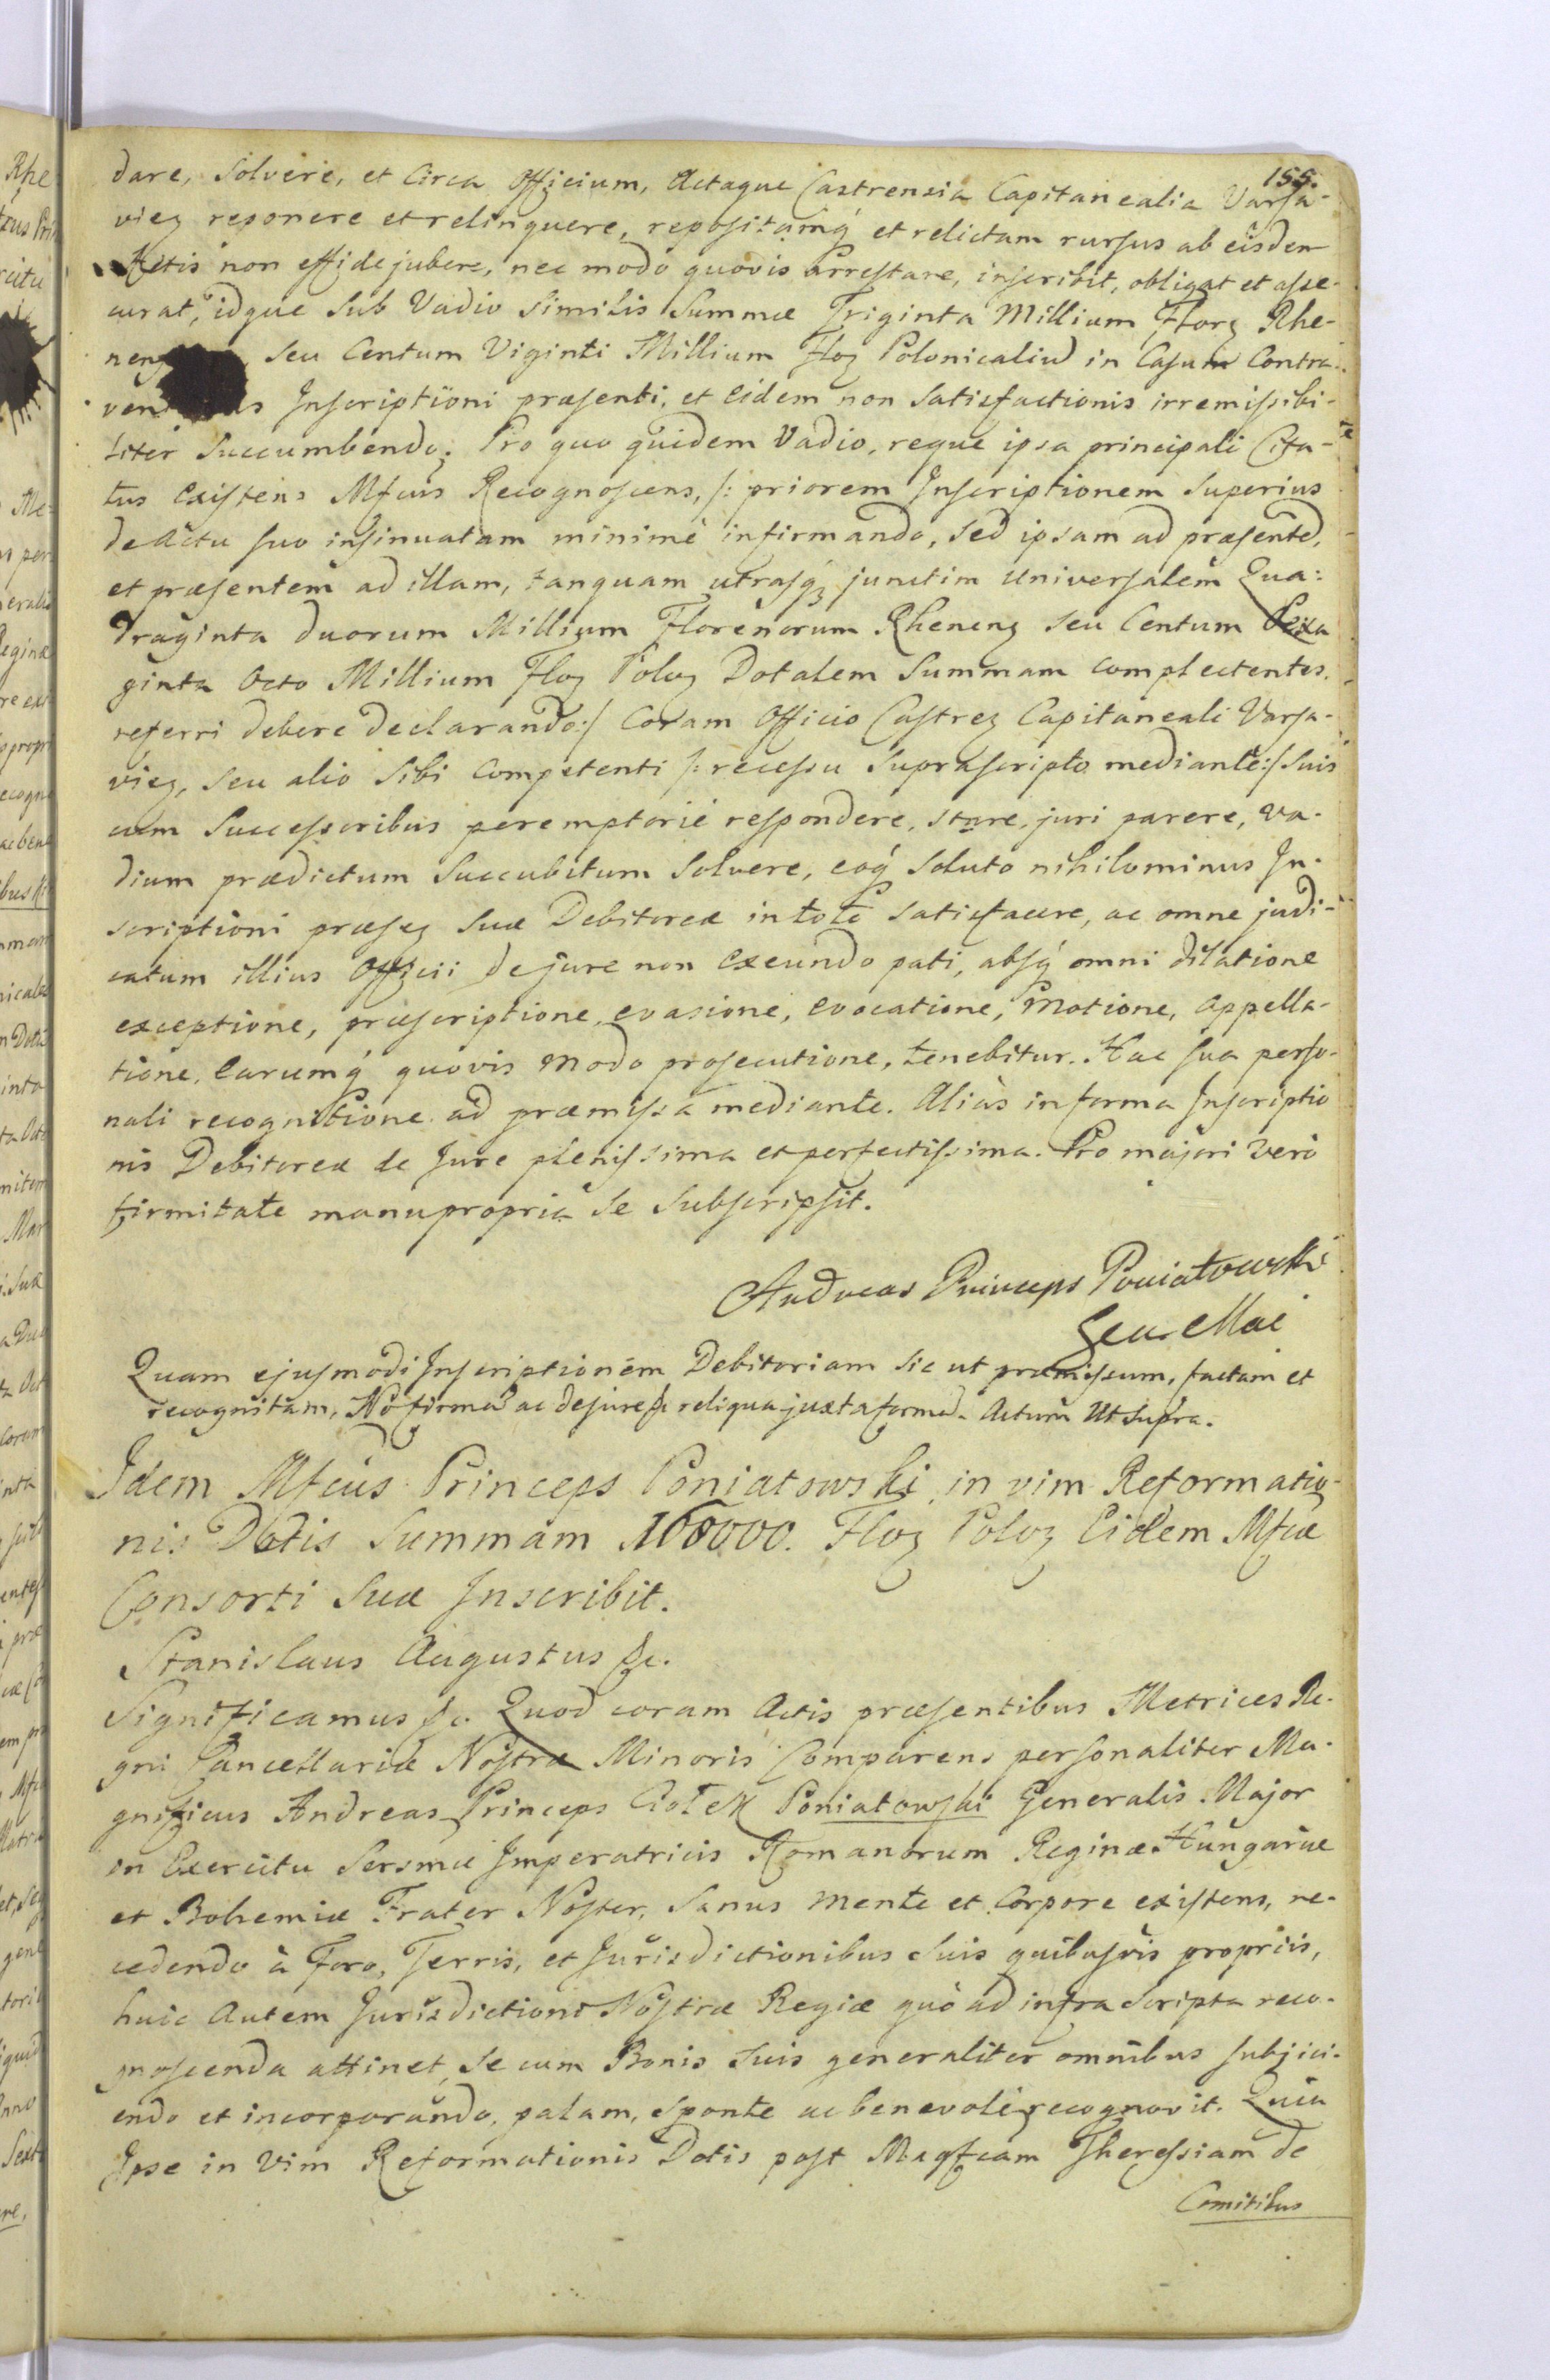 155.
dare, Solvere, et Circa Officium, Actaque Castrensia Capitanealia Varsa-
vieȝ reponere et relinquere, repositamq́ et relictam rursus ab eisdem
Actis non effidejubere, nec modo quovis arrestare, inscribit, obligat et asse-
curat, idque Sub Vadio Similis Summæ Triginta Millium Florȝ Rhe-
nenȝ Seu Centum Viginti Millium Floȝ Polonicaliu͞ in Casum Contra-
ven is Inscriptioni præsenti, et Eidem non Satisfactionis irremissibi-
liter Succumbendo; Pro quo quidem Vadio, reque ipsa principali Cita-
tus existens Mfcus Recognoscens, /: priorem Inscriptionem Superius
de Actu suo insinuatam minimè infirmando, sed ipsam ad præsente͞,
et præsentem ad illam, tanquam utrasq́ȝ junctim Universalem Qua-
draginta duorum Millium Florenorum Rhenenȝ seu Centum Sexa
ginta Octo Millium Floȝ Poloȝ Dotalem Summam complectentes,
referri debere declarando:/ Coram Officio Castreȝ Capitaneali Varsa-
vieȝ, seu alio Sibi Competenti /: recessu Suprascripto mediante:/ Suis
cum Successoribus peremptoriè respondere, stare, juri parere, Va-
dium prædictum Succubitum Solvere, eoq́ Soluto nihilominus In-
scriptioni præseȝ Suæ Debitoreæ in toto Satisfacere, ac omne judi-
catum illius Officii de jure non exeundo pati, absq́ omni dilatione
exceptione, præscriptione, evasione, evocatione, Motione, Appella-
tione, Earumq́ quovis modo prosecutione, tenebitur. Hac sua perso-
nali recognitione ad præmissa mediante. Aliàs in forma Inscriptio
nis Debitoreæ de Jure plenissima et perfectissima. Pro majori verò
firmitate manu propria Se Subscripsit.
Andreas Princeps Poniatowski
Quam ejusmodi Inscriptionem Debitoriam sic ut præmissum, factam et
recognitam, ac de jure &c reliqua juxta forma͞. Actum Ut Supra.
Idem Mfcus Princeps Poniatowski in vim Reformatio-
nis Dotis Summam 168000. Floȝ Poloȝ Eidem Mfcæ
Consorti Suæ Inscribit.
Stanislaus Augustus &c.
Significamus &c. Quod coram Actis præsentibus Metrices Re-
gni Cancellariæ Nostræ Minoris Comparens personaliter Ma-
gnificus Andreas Princeps Ciołek Poniatowski Generalis Major
in Exercitu Sersmæ Imperatricis Romanorum Reginæ Hungariæ
et Bohemiæ Frater Noster, Sanus mente et Corpore existens, re-
cedendo à Foro, Terris, et Jurisdictionibus Suis quibusvis propriis,
huic autem Jurisdictioni Nostræ Regiæ quò ad infra Scripta reco-
gnoscenda attinet, Se cum Bonis Suis generaliter omnibus subjici-
endo et incorporando, palam, Sponte ac benevolè recognovit. Quia
Ipse in Vim Reformationis Dotis post Magfcam Theressiam de
Comitibus